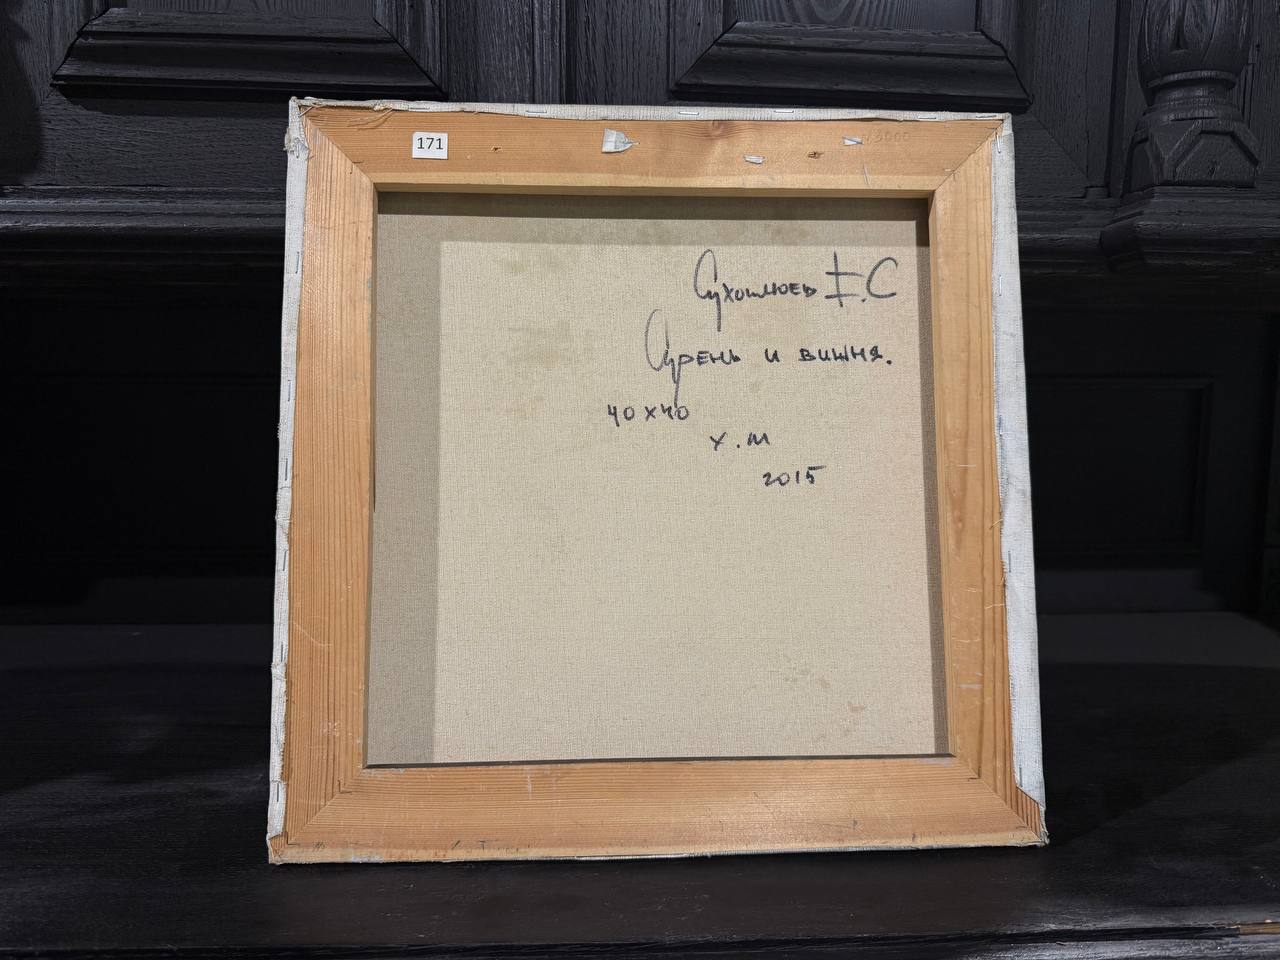 171
Сирень и вишня.
40х40
х.м
2015